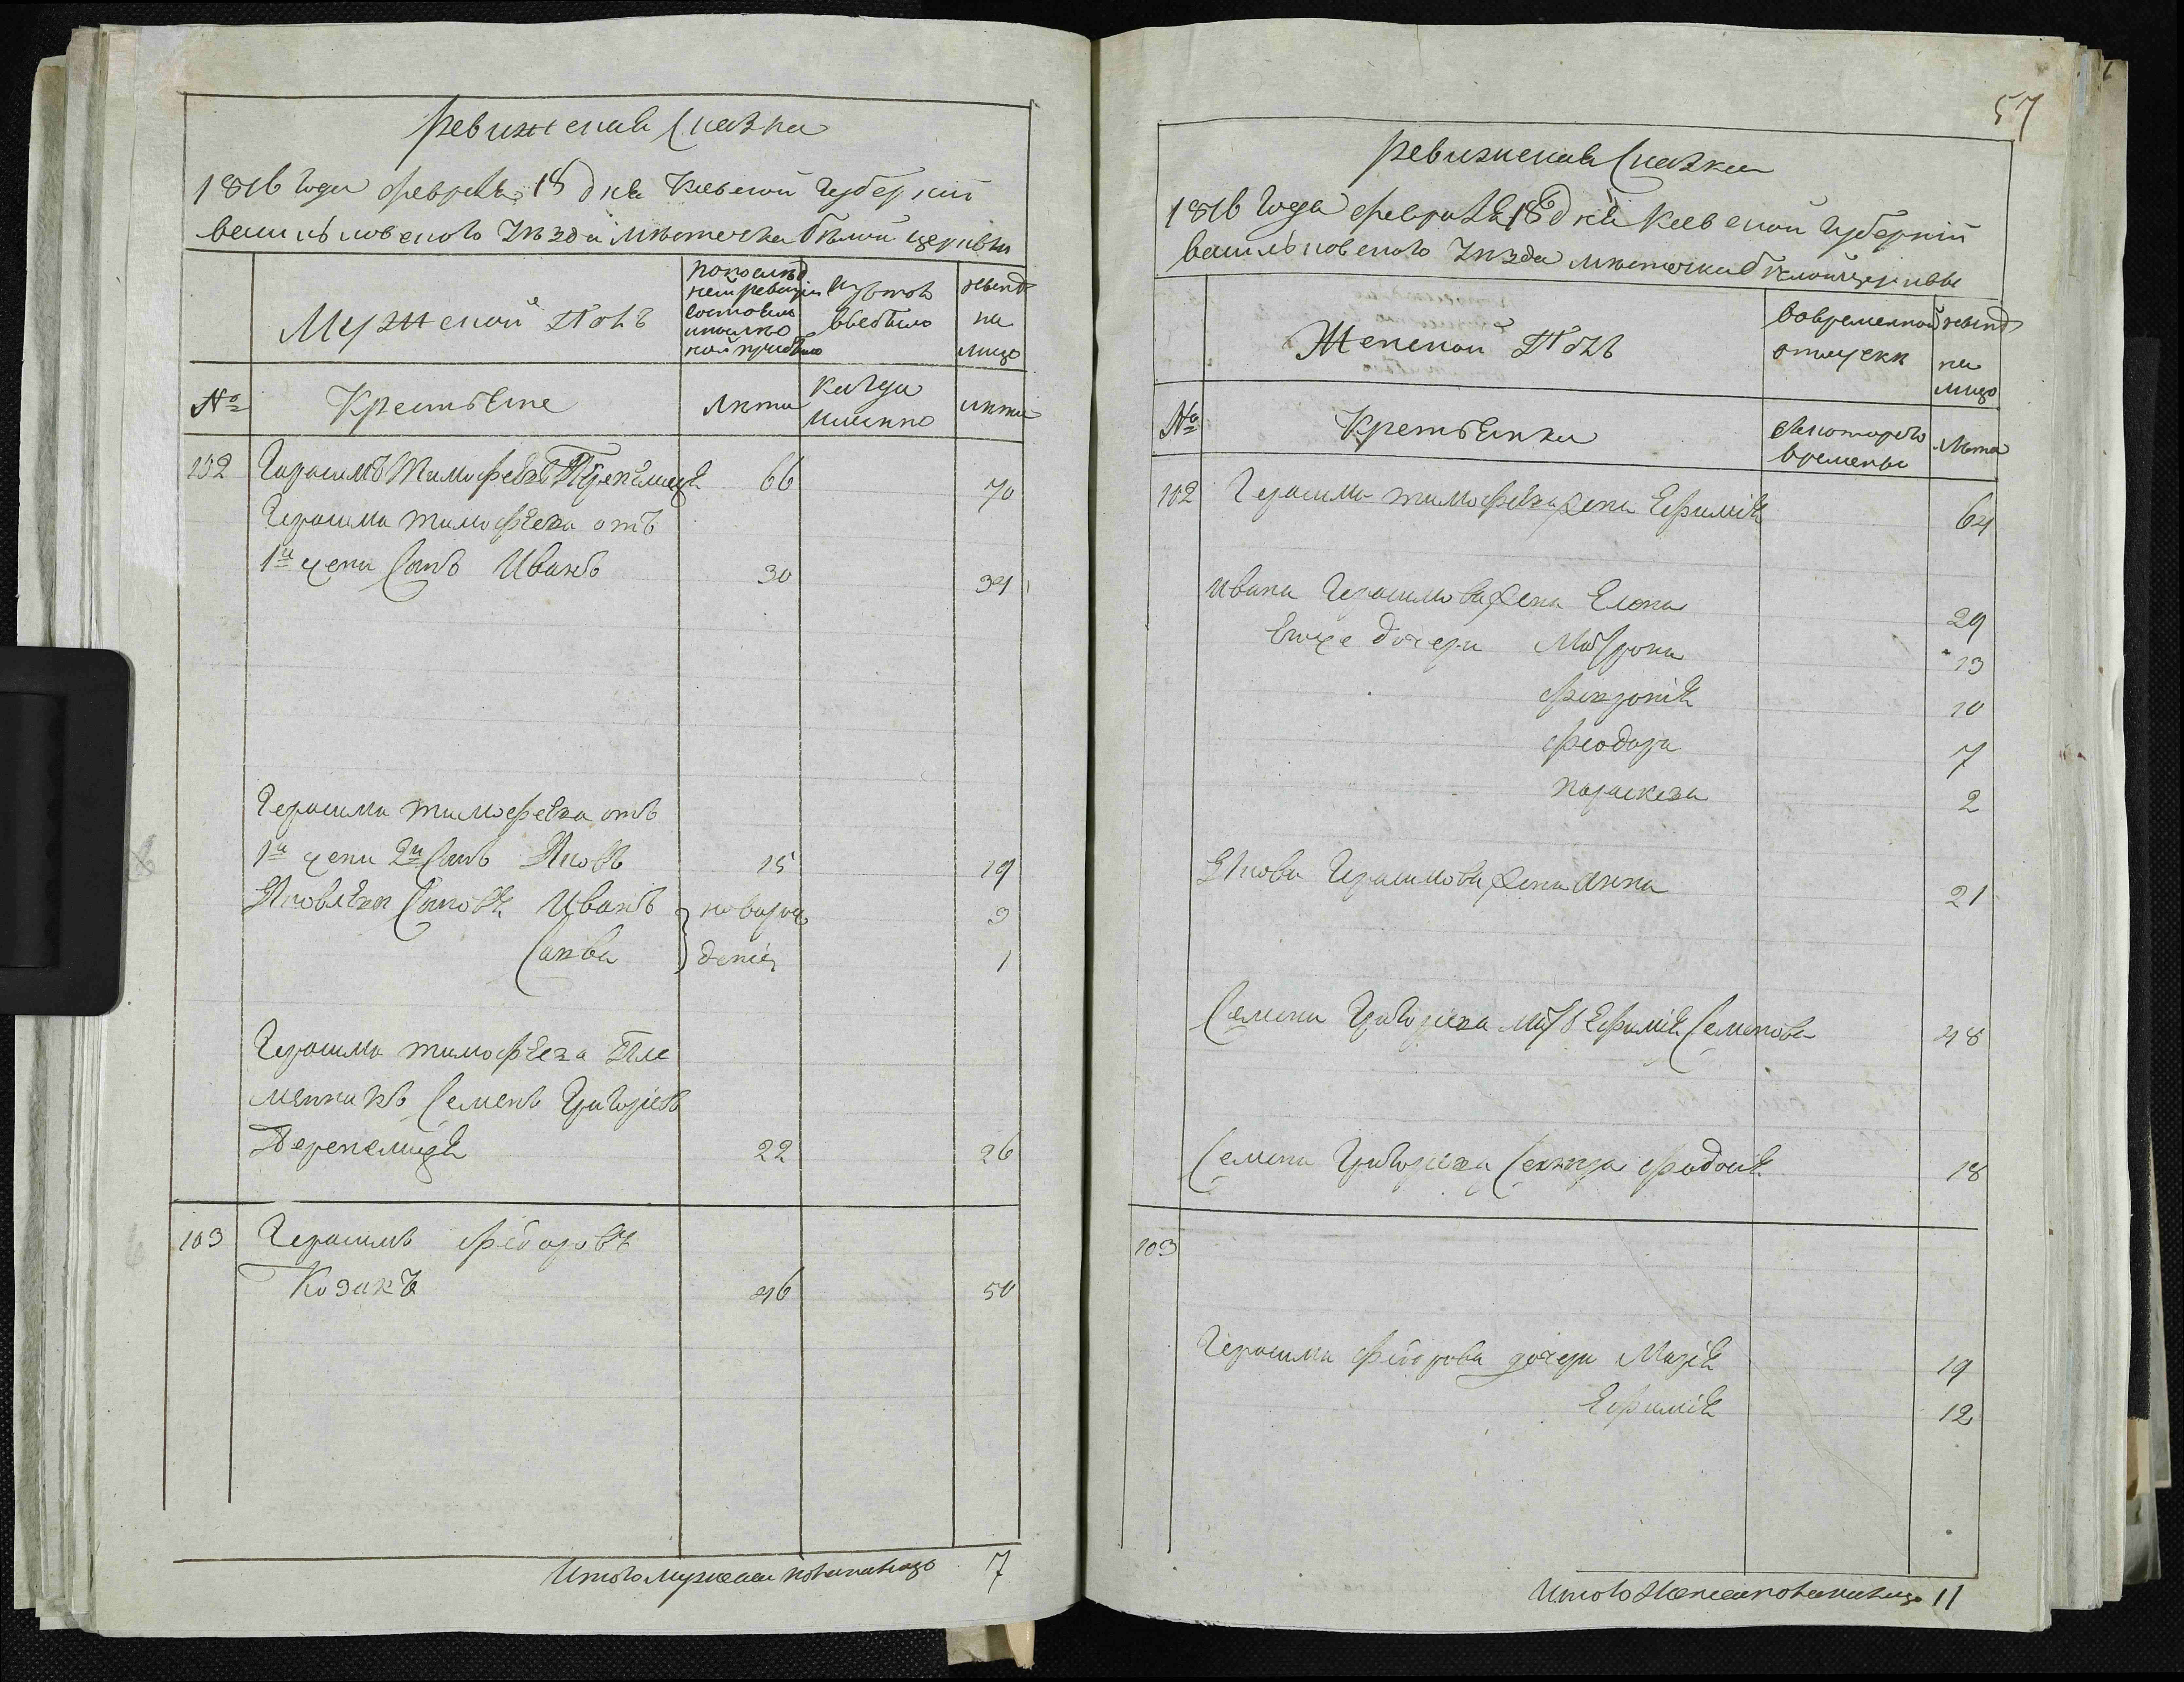 Ревижская Сказка
1816 Года февраля 18 дня Киевской Губерніи
Васильковского Уезда Местечка Белой церкви
Мужеской Полъ
По последней ревизіи состояло и после оной прибыло
Изъ того выбыло
Ныне на лицо
№
Крестьяне
Лета
Когда именно
Лета
102 Герасимъ Тимофеевъ Перепелица 66 70
Герасима Тимофеева отъ
1й жены Сынъ Иванъ 30 34
Герасима Тимофеева отъ
1й жены 2й Сынъ Яковъ 15 19
Яковлевы Сыновья Иванъ новорож 3
Савва дении 1
Герасима Тимофеева Пле
мянникъ Семенъ Григорьевъ
Перепелица 22 26
103 Герасимъ Федоровъ
Козакъ 46 50
Итого мужеска пола на лицо 7
57
Ревижская Сказка
1816 Года февраля 18 дня Киевской Губерніи
Васильковского Уезда местечка белой церквы
Женской Полъ
Во временной отлучки
Ныне на лицо
№
Крестьянки
С которого времены
Лета
102 Герасима Тимофеева жена Ефимія 64
Ивана Герасимова жена Елена 29
Его же дочери Матрона 13
Февронія 10
Феодора 7
Параскева 2
Якова Герасимова жена Анна 21
Семена Григорьева мать Ефимія Семенова 48
Семена Григорьева Сестра Феодосия 18
103
Герасима Федорова дочери Марія 19
Ефимія 12
Итого Женска пола на лицо 11